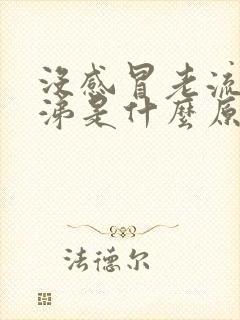 沒感冒老流
涕是什麼原
法德尔